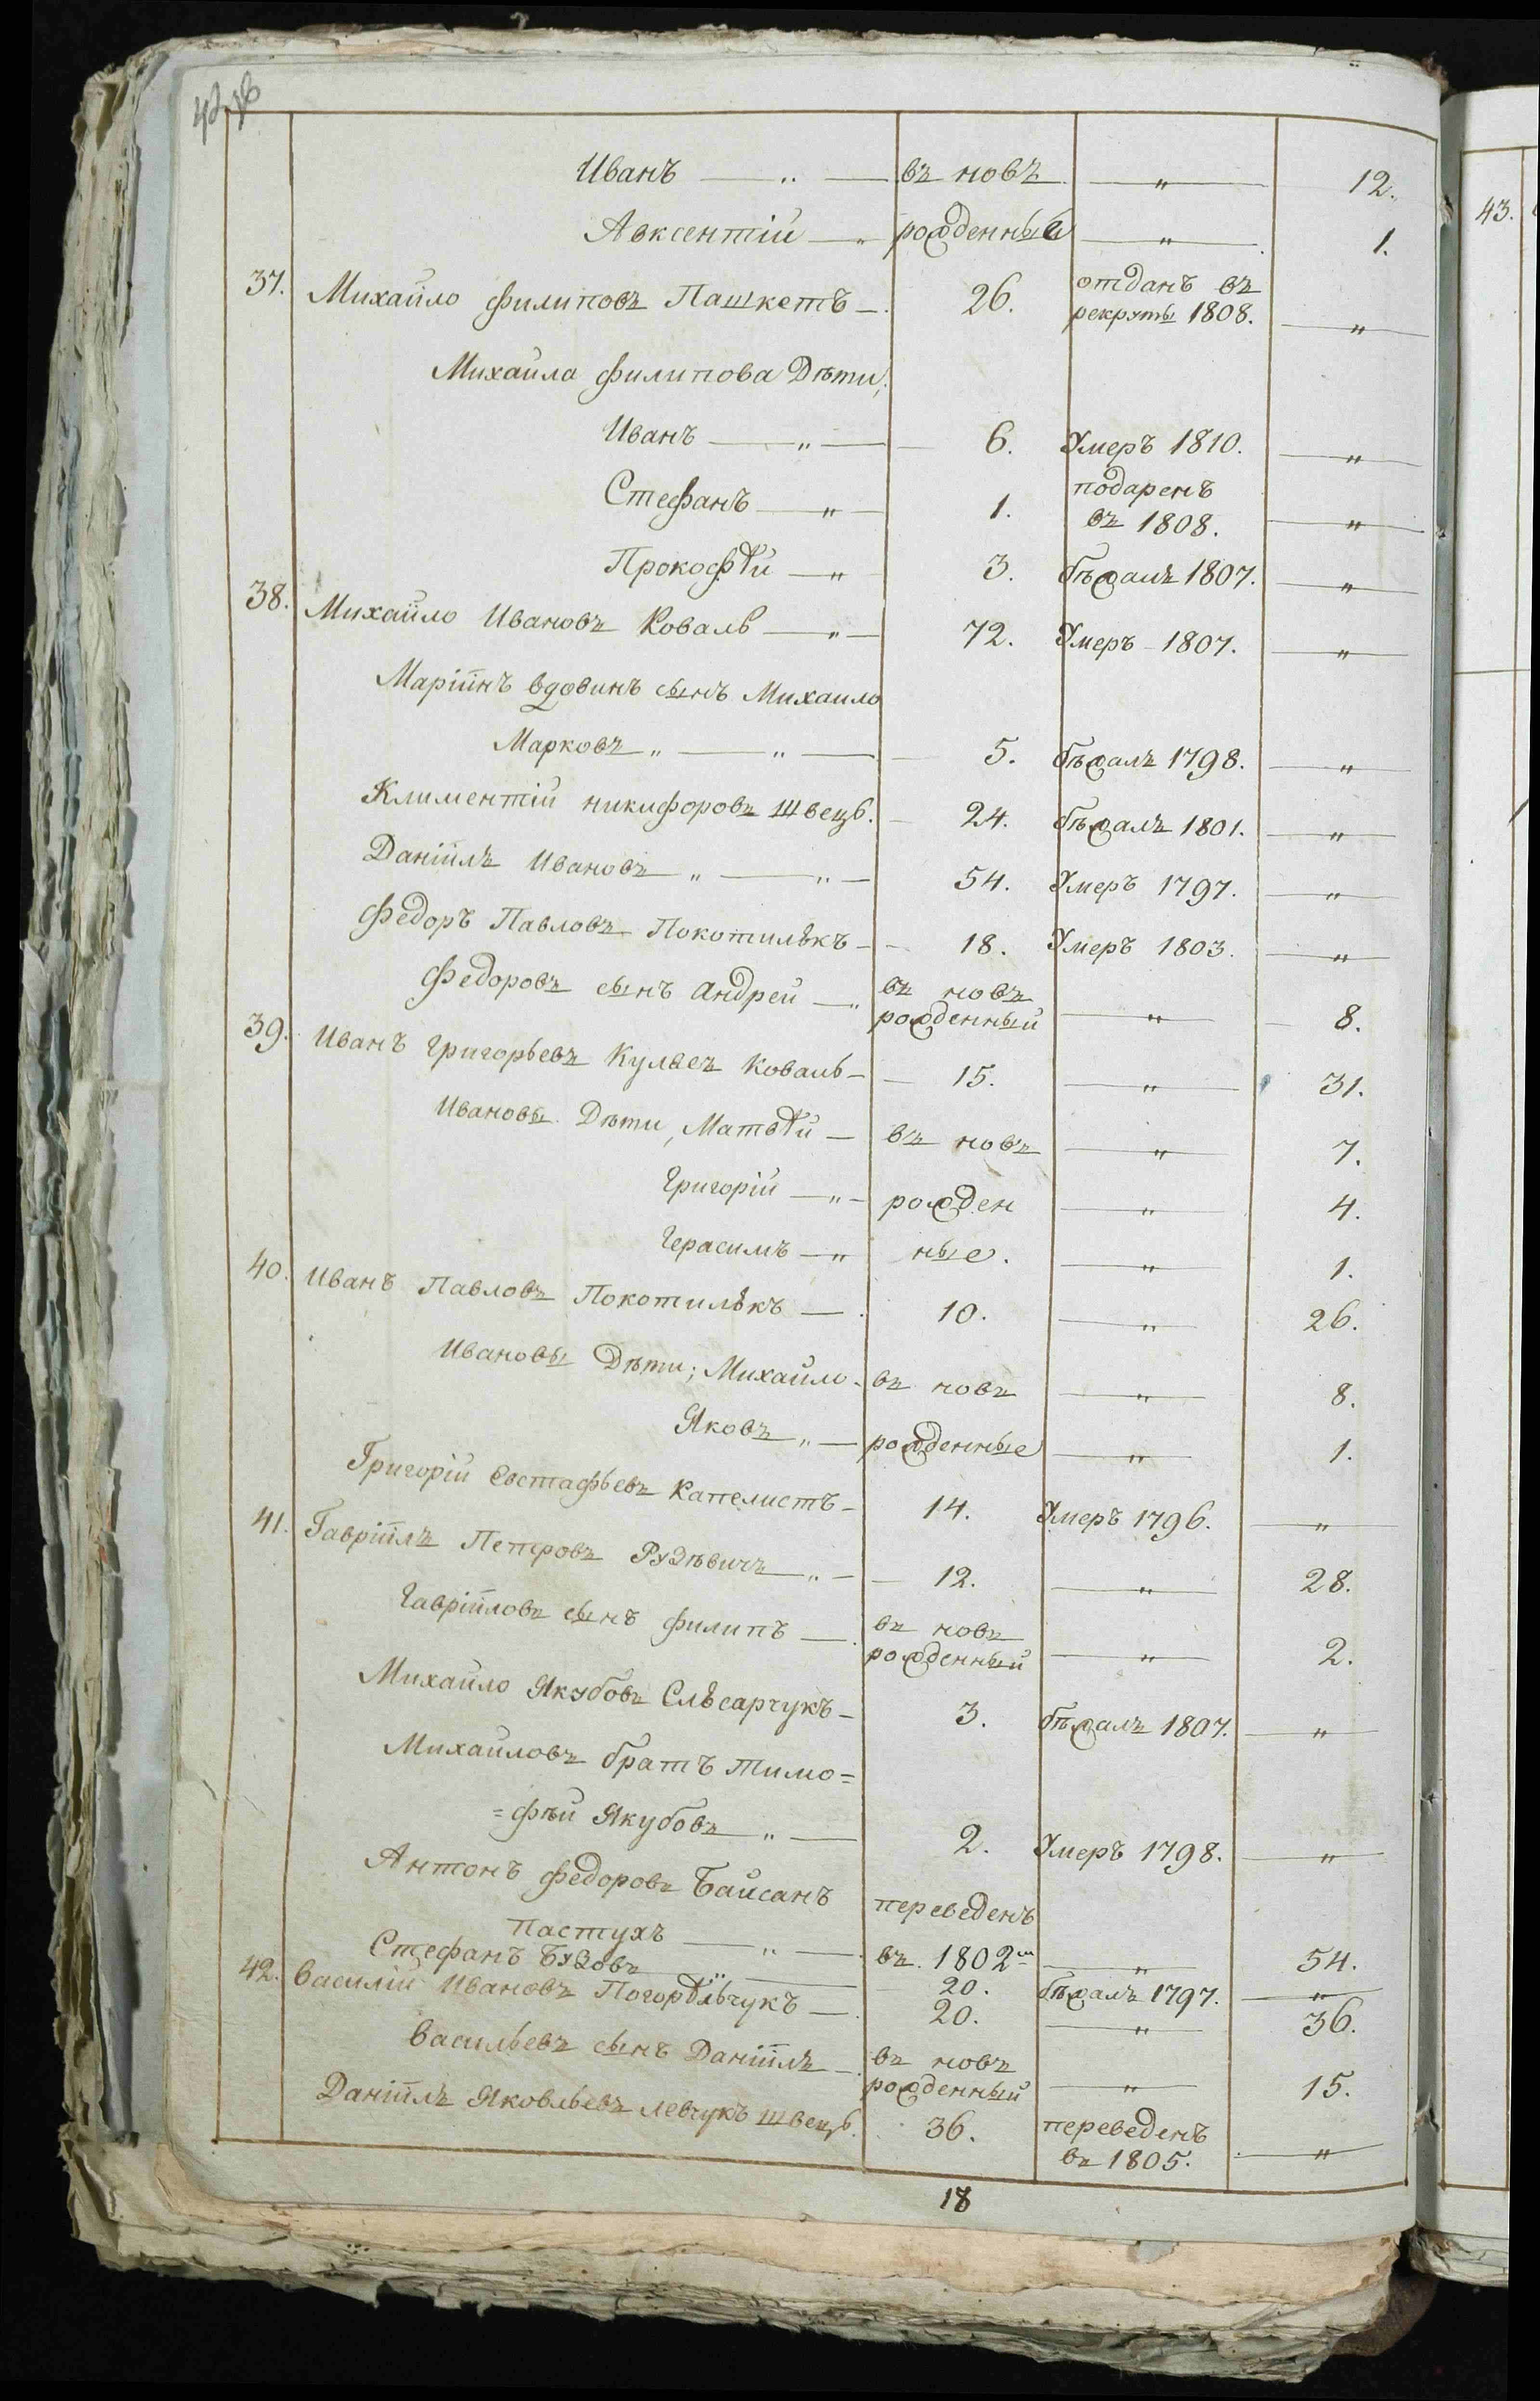 Иванъ — „ — въ новъ — „ — 12.
Авксентій — „ рожденные — „ — 1.
37. Михайло Филиповъ Пашкетъ — 26. отданъ въ
рекруты 1808. — „ —
Михайла Филипова Дѣти,
Иванъ — „ — 6. Умеръ 1810. — „ —
Стефанъ — „ — 1. подаренъ
въ 1808. — „ —
Прокофѣй — „ 3. бѣжалъ 1807. — „ —
38. Михайло Ивановъ Коваль — „ — 72. Умеръ 1807. — „ —
Маріинъ вдовинъ сынъ Михаило
Марковъ „ — „ — 5. бѣжалъ 1798. — „ —
Климентій никифоровъ Швецъ. 24. бѣжалъ 1801. — „ —
Даніилъ Ивановъ „ — „ — 54. Умеръ 1797. — „ —
Федоръ Павловъ Покотилѣкъ — 18. Умеръ 1803. — „ —
Федоровъ сынъ Андрей — „ въ новъ
рожденный — „ — 8.
39. Иванъ Григорьевъ Коваль — 15. — „ — 31.
Ивановы Дѣти, Матвѣй — въ новъ — „ — 7.
Григорій — „ — рожден — „ — 4.
Герасимъ — „ ные. — „ — 1.
40. Иванъ Павловъ Покотилѣкъ — 10. — „ — 26.
Ивановы Дѣти; Михайло — въ новъ — „ — 8.
Яковъ „ — рожденные — „ — 1.
Григорій Евстафьевъ Капелистъ — 14. Умеръ 1796. — „ —
41. Гавріилъ Петровъ Рудѣвичъ — „ — 12. — „ — 28.
Гавріиловъ сынъ Филипъ — въ новъ
рожденный — „ — 2.
Михайло Якубовъ Слѣсарчукъ — 3. бѣжалъ 1807. — „ —
Михайловъ братъ Тимо=
=фѣй Якубовъ „ — 2. Умеръ 1798. — „ —
Антонъ Федоровъ Байсанъ переведенъ
пастухъ — „ — въ 1802м — „ — 54.
Стефанъ — „ — 20. бѣжалъ 1797. — „ —
42. Василій Ивановъ Погорѣльчукъ — 20. — „ — 36.
Васильевъ сынъ Даніилъ — въ новъ
рожденный — „ — 15.
Даніилъ Яковльевъ Левчукъ Швецъ. 36. переведенъ
въ 1805. — „ —
18
43.